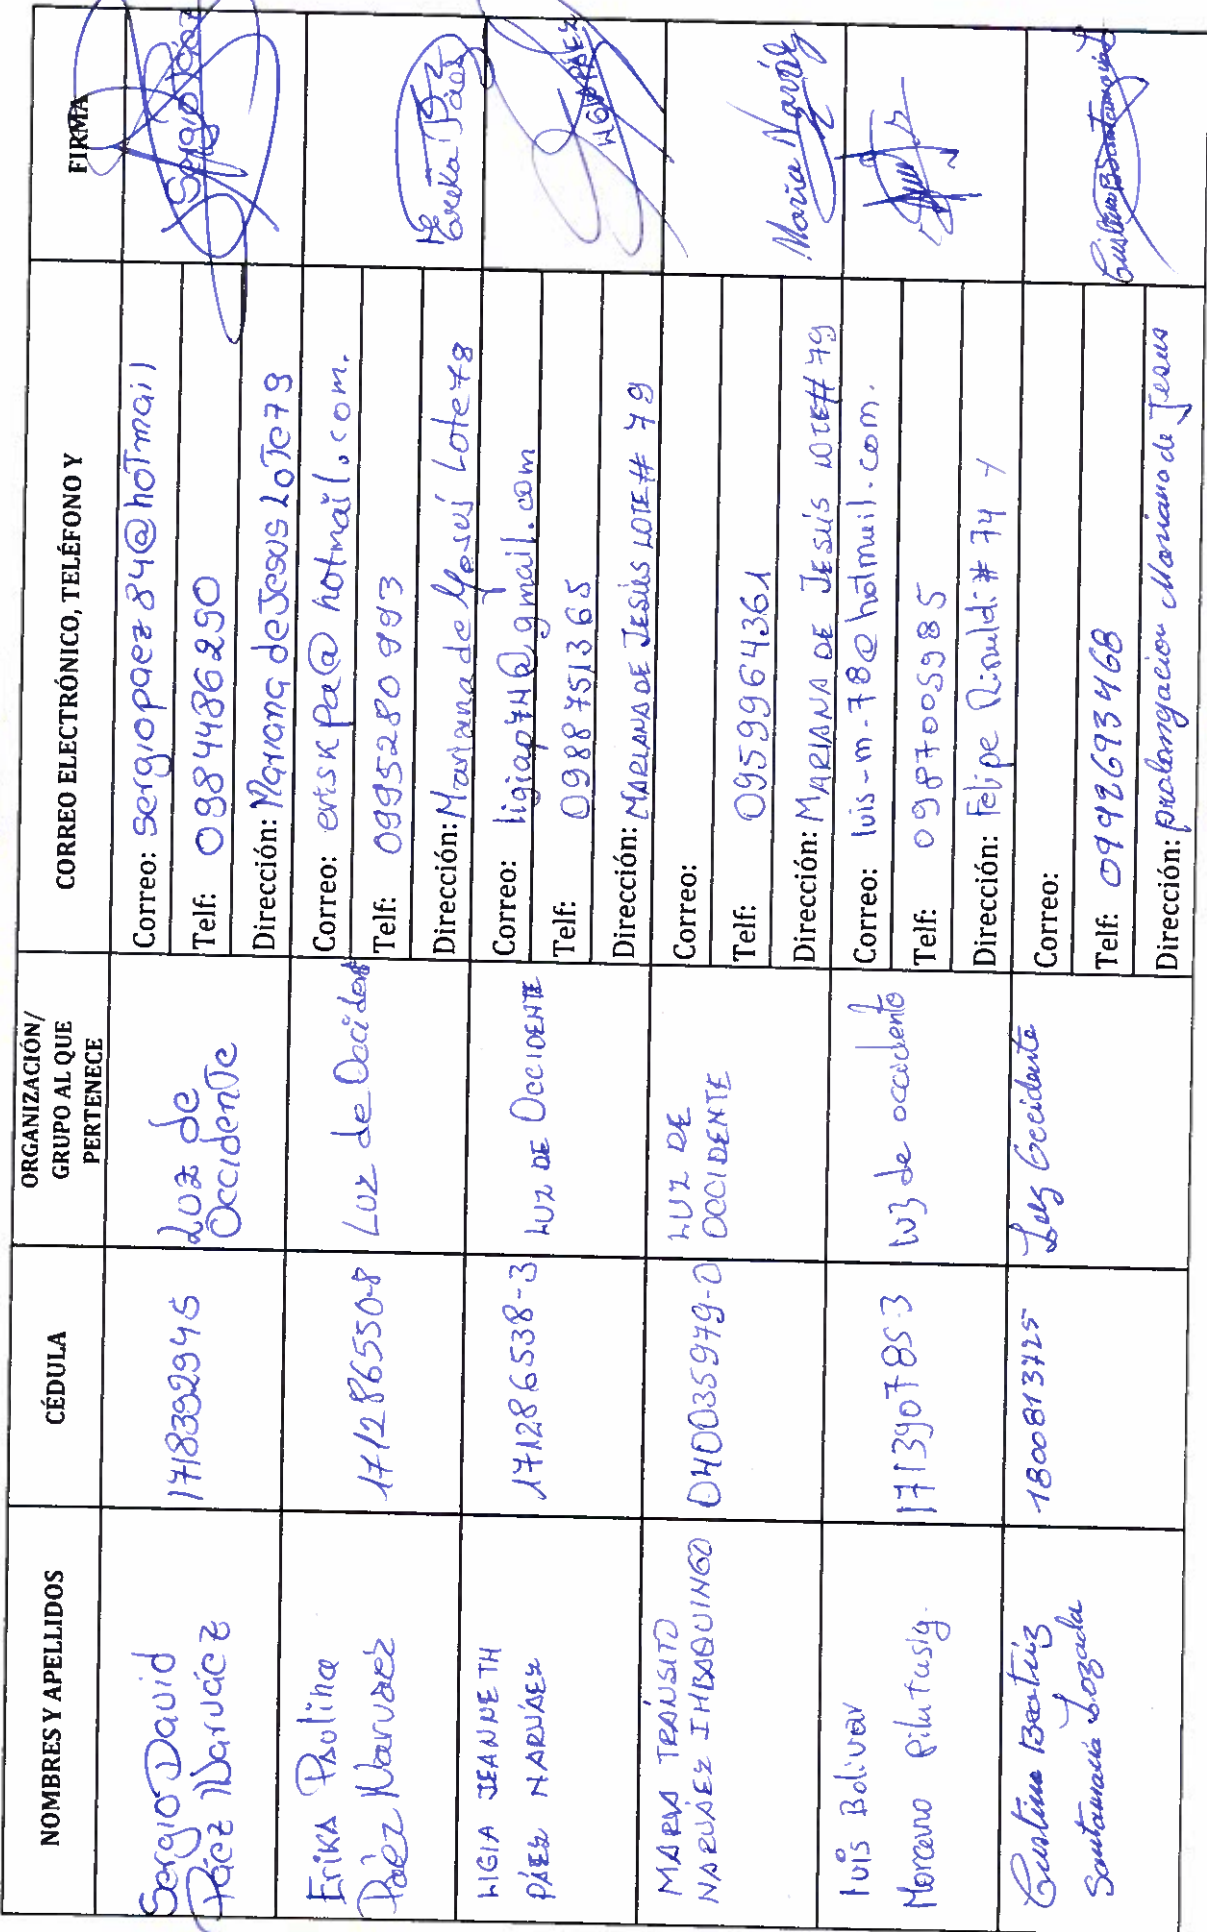 NOMBRES Y APELLIDOS
CÉDULA
ORGANIZACIÓN/
GRUPO AL QUE
PERTENECE
CORREO ELECTRÓNICO, TELÉFONO Y
FIRMA
Sergio David
Páez Narváez
1718392945
Luz de
Occidente
Correo: sergiopaez84@hotmail
Telf: 0984486290
Dirección: Mariana de Jesus LoTe79
Sergio Páez
Erika Paulina
Paéz Narvaez
171286550-8
Luz de Occident
Correo: eriskpa@hotmail.com.
Telf: 0995280993
Dirección: Mariana de Jesús Lote 78
Ereka Páez
LIGIA JEANNETH
PÁEZ NARVÁEZ
171286538-3
LUZ DE OCCIDENTE
Correo: ligiap74@gmail.com
Telf: 0988751365
Dirección: MARIANA DE JESÚS LOTE# 79
PÁEZ
MARIA TRÁNSITO
NARVÁEZ IMBAQUINGO
040035979-0
LUZ DE
OCCIDENTE
Correo:
Telf: 0959964361
Dirección: MARIANA DE JESÚS LOTE# 79
Maria Narváez
luis Bolivar
Moreano Pilatasig.
171390785-3
luz de occidente
Correo: luis-m-78@hotmail.com.
Telf: 0987005985
Dirección: Felipe Rinaldi # 74 y
Cristina Beatriz
Santamaria Lozada
1800813725
Luz Occidente
Correo:
Telf: 0992693468
Dirección: prolongacion Mariana de Jesus